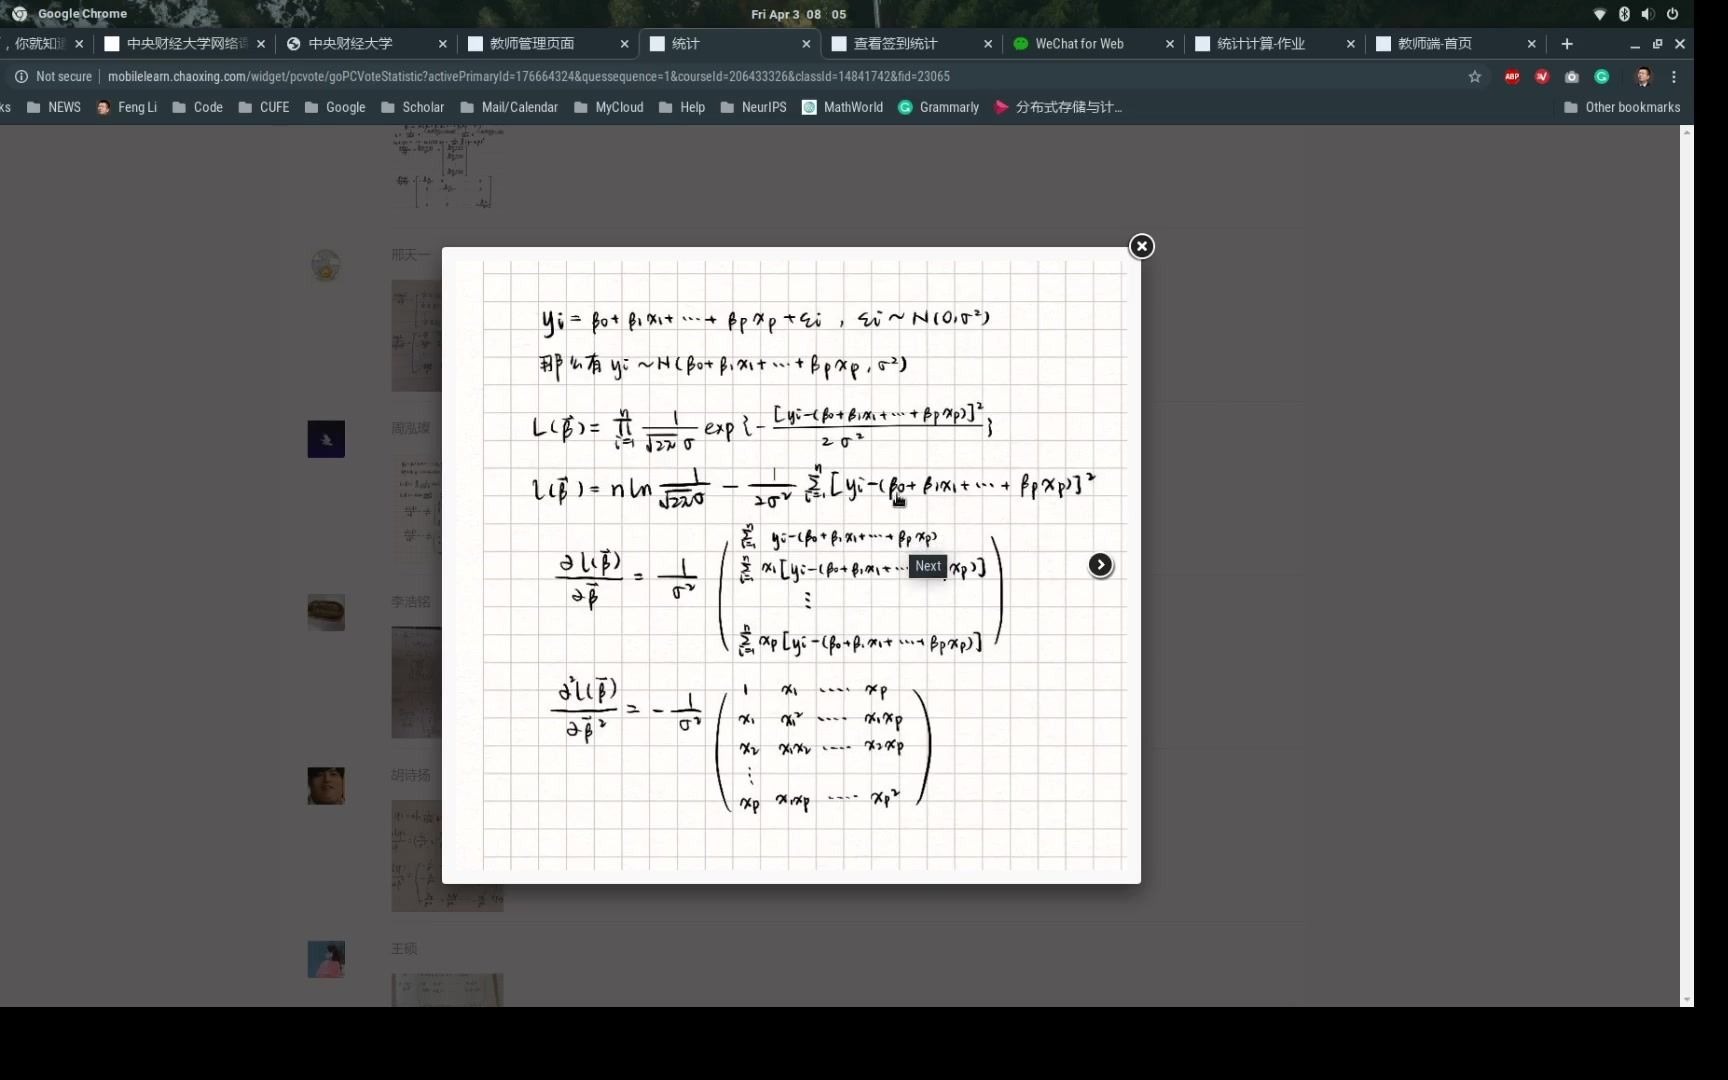 Google Chrome
Fri Apr 3 08 : 05
, 你就知道
中央财经大学网络
中央财经大学
教师管理页面
统计
查看签到统计
WeChat for Web
统计计算-作业
教师端-首页
Not secure | mobilelearn.chaoxing.com/widget/pcvote/goPCVoteStatistic?activePrimaryId=176664324&quessequence=1&courseId=206433326&classId=14841742&fid=23065
ABP
ks NEWS Feng Li Code CUFE Google Scholar Mail/Calendar MyCloud Help NeurIPS MathWorld Grammarly 分布式存储与计... Other bookmarks
邢天一
yi = β0 + β1x1 + ··· + βpxp + εi , εi ~ N(0,σ²)
那么有 yi ~ N(β0 + β1x1 + ··· + βpxp, σ²)
周泓璨
L(β⃗) = ∏_{i=1}^{n} 1/(√2π σ) exp{ - [yi-(β0+β1x1+···+βpxp)]² / 2σ² }
l(β⃗) = n ln 1/(√2π σ) - 1/(2σ²) ∑_{i=1}^{n} [yi-(β0+β1x1+···+βpxp)]²
∂l(β⃗)/∂β⃗ = 1/σ² ( ∑_{i=1}^{n} yi-(β0+β1x1+···+βpxp)
∑_{i=1}^{n} x1[yi-(β0+β1x1+··· xp)]
Next
⋮
∑_{i=1}^{n} xp[yi-(β0+β1x1+···+βpxp)] )
李浩铭
∂²l(β⃗)/∂β⃗² = - 1/σ² ( 1 x1 ···· xp
x1 x1² ···· x1xp
x2 x1x2 ···· x2xp
⋮
xp x1xp ···· xp² )
胡诗扬
王硕